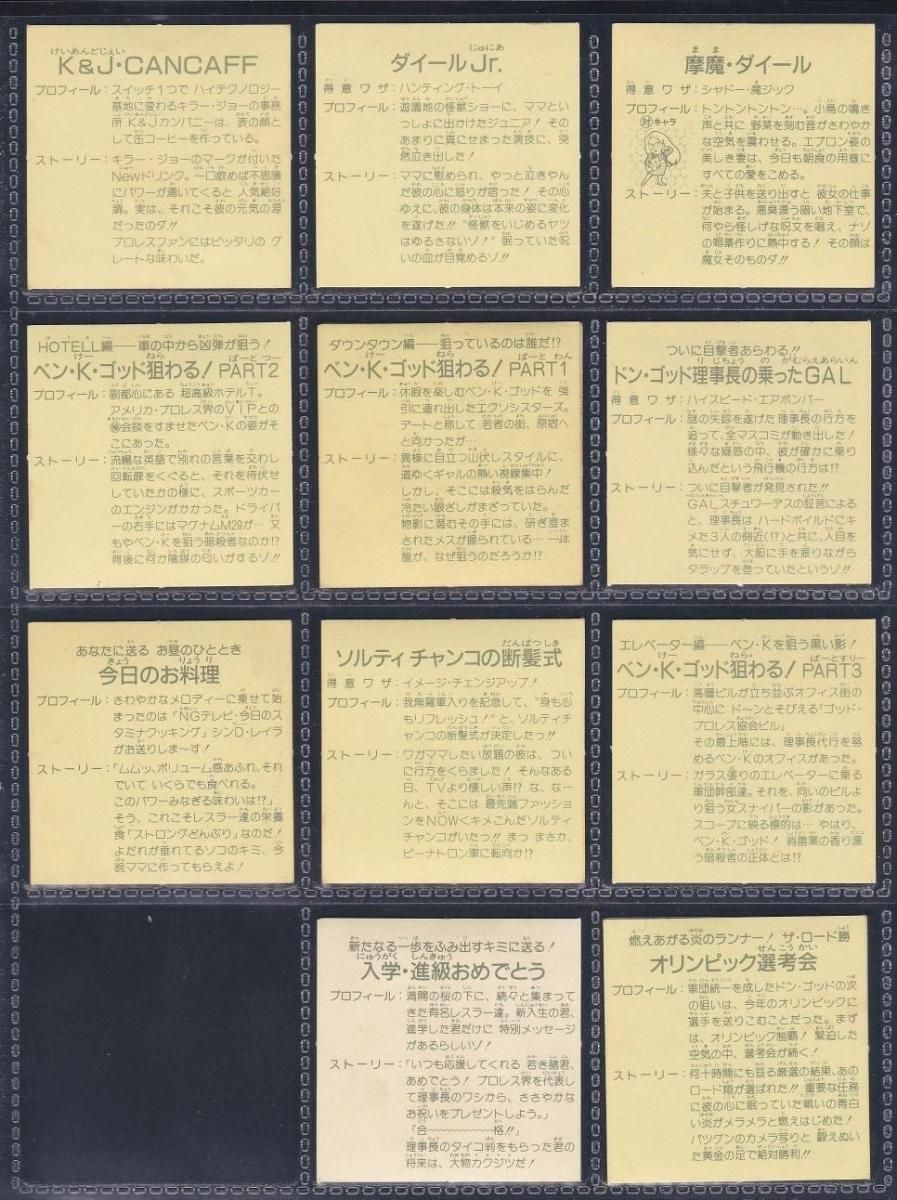 けいあんどじぇい
K&J・CANCAFF
プロフィール：スイッチ1つで ハイテクノロジー
基地に変わるキラー・ジョーの事務
所 K&Jカンパニーは、表の顔と
して缶コーヒーを作っている。
ストーリー：キラー・ジョーのマークが付いた
Newドリンク。一口飲めば不思議
にパワーが湧いてくると 人気絶好
調。実は、それこそ彼の元気の源
だったのダ!!
プロレスファンにはピッタリの グ
レートな味わいだ。
じゅにあ
ダイールJr.
得意ワザ：ハンティング・トーイ
プロフィール：遊園地の怪獣ショーに、ママとい
っしょに出かけたジュニア！その
あまりに真にせまった演技に、突
然泣き出した！
ストーリー：ママに慰められ、やっと泣きやん
だ彼の心に怒りが宿った！その心
ゆえに、彼の身体は本来の姿に変化
を遂げた!!“怪獣をいじめるヤツ
はゆるさないゾ！”眠っていた呪
いの血が目覚めるゾ!!
まま
摩魔・ダイール
得意ワザ：シャドー・魔ジック
プロフィール：トントントントン…。小鳥の鳴き
声と共に 野菜を刻む音がさわやか
な空気を震わせる。エプロン姿の
美しき妻は、今日も朝食の用意に
すべての愛をこめる。
対キャラ
ストーリー：夫と子供を送り出すと 彼女の仕事
が始まる。悪臭漂う暗い地下室で、
何やら怪しげな呪文を唱え、ナゾ
の媚薬作りに熱中する！その顔は
魔女そのものダ!!
HOTELL編──車の中から凶弾が狙う！
けー ねら ぱーとつー
ベン・K・ゴッド狙わる！PART2
プロフィール：副都心にある 超高級ホテルT。
アメリカ・プロレス界のVIPとの
㊙会談をすませたベン・Kの姿がそ
こにあった。
ストーリー：流暢な英語で別れの言葉を交わし
回転扉をくぐると、それを待伏せ
していたかの様に、スポーツカー
のエンジンがかかった。ドライバ
ーの右手にはマグナムM29が… 又
もやベン・Kを狙う暗殺者なのか!?
背後に何か陰謀の匂いがするゾ!!
ダウンタウン編──狙っているのは誰だ!?
けー ねら ぱーと わん
ベン・K・ゴッド狙わる！PART1
プロフィール：休暇を楽しむベン・K・ゴッドを 強
引に連れ出したエクソシスターズ。
デートと称して 若者の街、原宿へ
と向かったが…
ストーリー：異様に目立つ山伏しスタイルに、
道ゆくギャルの熱い視線集中！
しかし、そこには殺気をはらんだ
冷たい眼ざしがまざっていた。
物影に潜むその手には、研ぎ澄ま
されたメスが握られている… 一体
誰が、なぜ狙うのだろうか!?
ついに目撃者あらわる!!
りじちょう の がむらえあらいん
ドン・ゴッド理事長の乗ったGAL
得意ワザ：ハイスピード・エアポンパー
プロフィール：謎の失踪を遂げた理事長の行方を
追って、全マスコミが動き出した！
様々な疑惑の中、彼が確かに乗り
込んだという飛行機の行方は!?
ストーリー：ついに目撃者が発見された!!
GALスチュワーデスの証言による
と、理事長は ハードボイルドにキ
メた3人の側近(!?)と共に、人目を
気にせず、大胆に手を振りながら
タラップを登っていたというゾ!!
あなたに送る お昼のひととき
きょう りょうり
今日のお料理
プロフィール：さわやかなメロディーに乗せて始
まったのは「NGテレビ・今日のス
タミナクッキング」シンD・レイラ
がお送りしま〜す！
ストーリー：「ムムッ、ボリューム感あふれ、それ
でいて いくらでも食べれる。
このパワーみなぎる味わいは!?」
そう、これこそレスラー達の栄養
食「ストロングどんぶり」なのだ！
よだれが垂れてるソコのキミ、今
晩ママに作ってもらえよ！
だんぱつしき
ソルティチャンコの断髪式
得意ワザ：イメージ・チェンジアップ！
プロフィール：我無羅軍入りを記念して、“身も心
もリフレッシュ！”と、ソルティ
チャンコの断髪式が決定したっ!!
ストーリー：ワガママしたい放題の彼は、つい
に行方をくらました！そんなある
日、TVより懐しい声!? な、なー
んと、そこには 最先端ファッショ
ンをNOWくキメこんだソルティ
チャンコがいたっ!! まっ まさか、
ビーナトロン軍に転向か!?
エレベーター編──ベン・Kを狙う黒い影！
けー ねら ぱーとすりー
ベン・K・ゴッド狙わる！PART3
プロフィール：高層ビルが立ち並ぶオフィス街の
中心に ド〜ンとそびえる「ゴッド・
プロレス協会ビル」
その最上階には、理事長代行を努
めるベン・Kのオフィスがあった。
ストーリー：ガラス張りのエレベーターに乗る
軍団幹部達。それを、向いのビルよ
り狙う女スナイパーの影があった。
スコープに映る標的は… やはり、
ベン・K・ゴッド！消毒薬の香り漂
う暗殺者の正体とは!?
新たなる一歩をふみ出すキミに送る！
にゅうがく しんきゅう
入学・進級おめでとう
プロフィール：満開の桜の下に、続々と集まって
きた有名レスラー達。新入生の君、
進学した君だけに 特別メッセージ
があるらしいゾ！
ストーリー：「いつも応援してくれる 若き諸君、
あめでとう！プロレス界を代表し
て理事長のワシから、ささやかな
お祝いをプレゼントしよう。」
「合〜〜〜〜格!!」
理事長のタイコ判をもらった君の
将来は、大物カクジツだ！
燃えあがる炎のランナー！ ザ・ロード勝
せんこうかい
オリンピック選考会
プロフィール：軍団統一を成したドン・ゴッドの次
の狙いは、今年のオリンピックに
選手を送りこむことだった。まず
は、オリンピック制覇！緊迫した
空気の中、選考会が続く！
ストーリー：何十時間にも亘る厳選の結果、あの
ロード翔が選ばれた!! 重要な任務
に彼の心に眠っていた戦いの青白
い炎がメラメラと燃えはじめた！
バツゲンのカメラ写りと 鍛えぬい
た黄金の足で絶対勝利!!